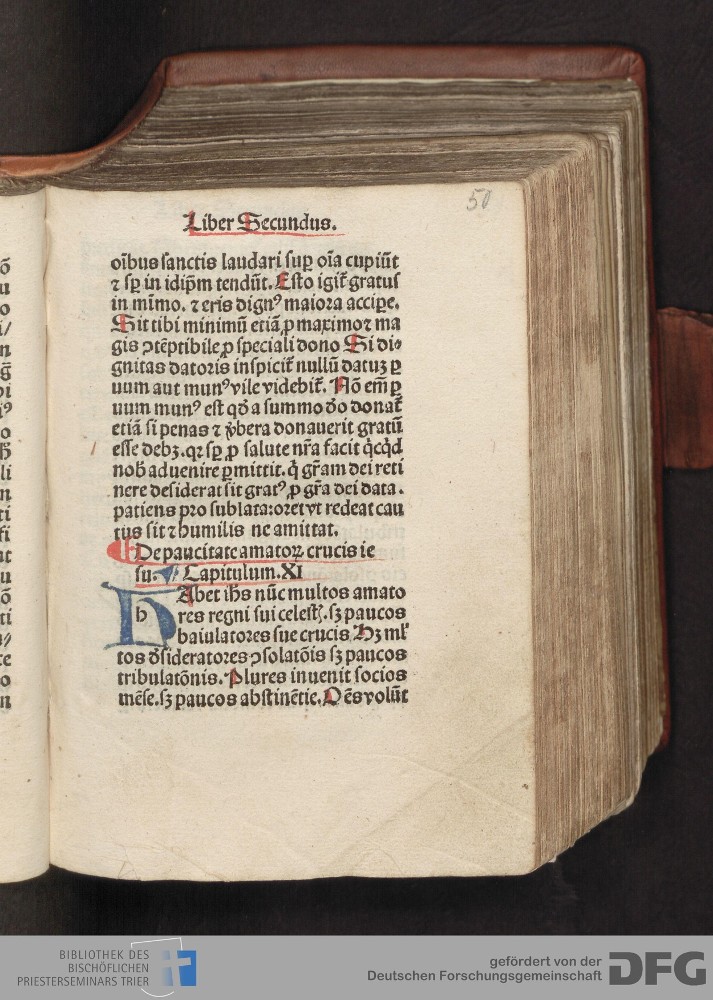 50
Liber Secundus.
oībus sanctis laudari suꝑ oīa cupiūt
⁊ sꝑ in idip̄m tendūt. Esto igit᷑ gratus
in mīmo. ⁊ eris dignꝰ maiora accipe.
Sit tibi minimū etiā ꝓ maximo⁊ ma
gis ↄtēptibile ꝓ speciali dono Si di⸗
gnitas datoris inspicit᷑ nullū datuꝫ ꝑ
uum aut munꝰ vile videbit᷑. Nō em̄ ꝑ
uum munꝰ est qd̄ a summo d̄o donat᷑
etiā si penas ⁊ v̄bera donauerit gratū
esse debꝫ. qꝛ sꝑ ꝓ salute nr̄a facit q̇cq̇d
nob̄ aduenire ꝑmittit. q̇ gr̄am dei reti
nere desiderat sit gratꝰ ꝓ gr̄a dei data.
patiens pro sublata: oret vt redeat cau
tus sit ⁊ humilis ne amittat.
De paucitate amatoꝝ crucis ie
su. Capitulum. XI
h
HAbet ih̄s nūc multos amato
res regni sui celestꝭ. sꝫ paucos
baiulatores sue crucis Hꝫ ml̄
tos d̄sideratores ↄsolatōis sꝫ paucos
tribulatōnis. Plures inuenit socios
mēse. sꝫ paucos abstinētie. Oēs volūt
BIBLIOTHEK DES
BISCHÖFLICHEN
PRIESTERSEMINARS TRIER
gefördert von der
Deutschen Forschungsgemeinschaft
DFG